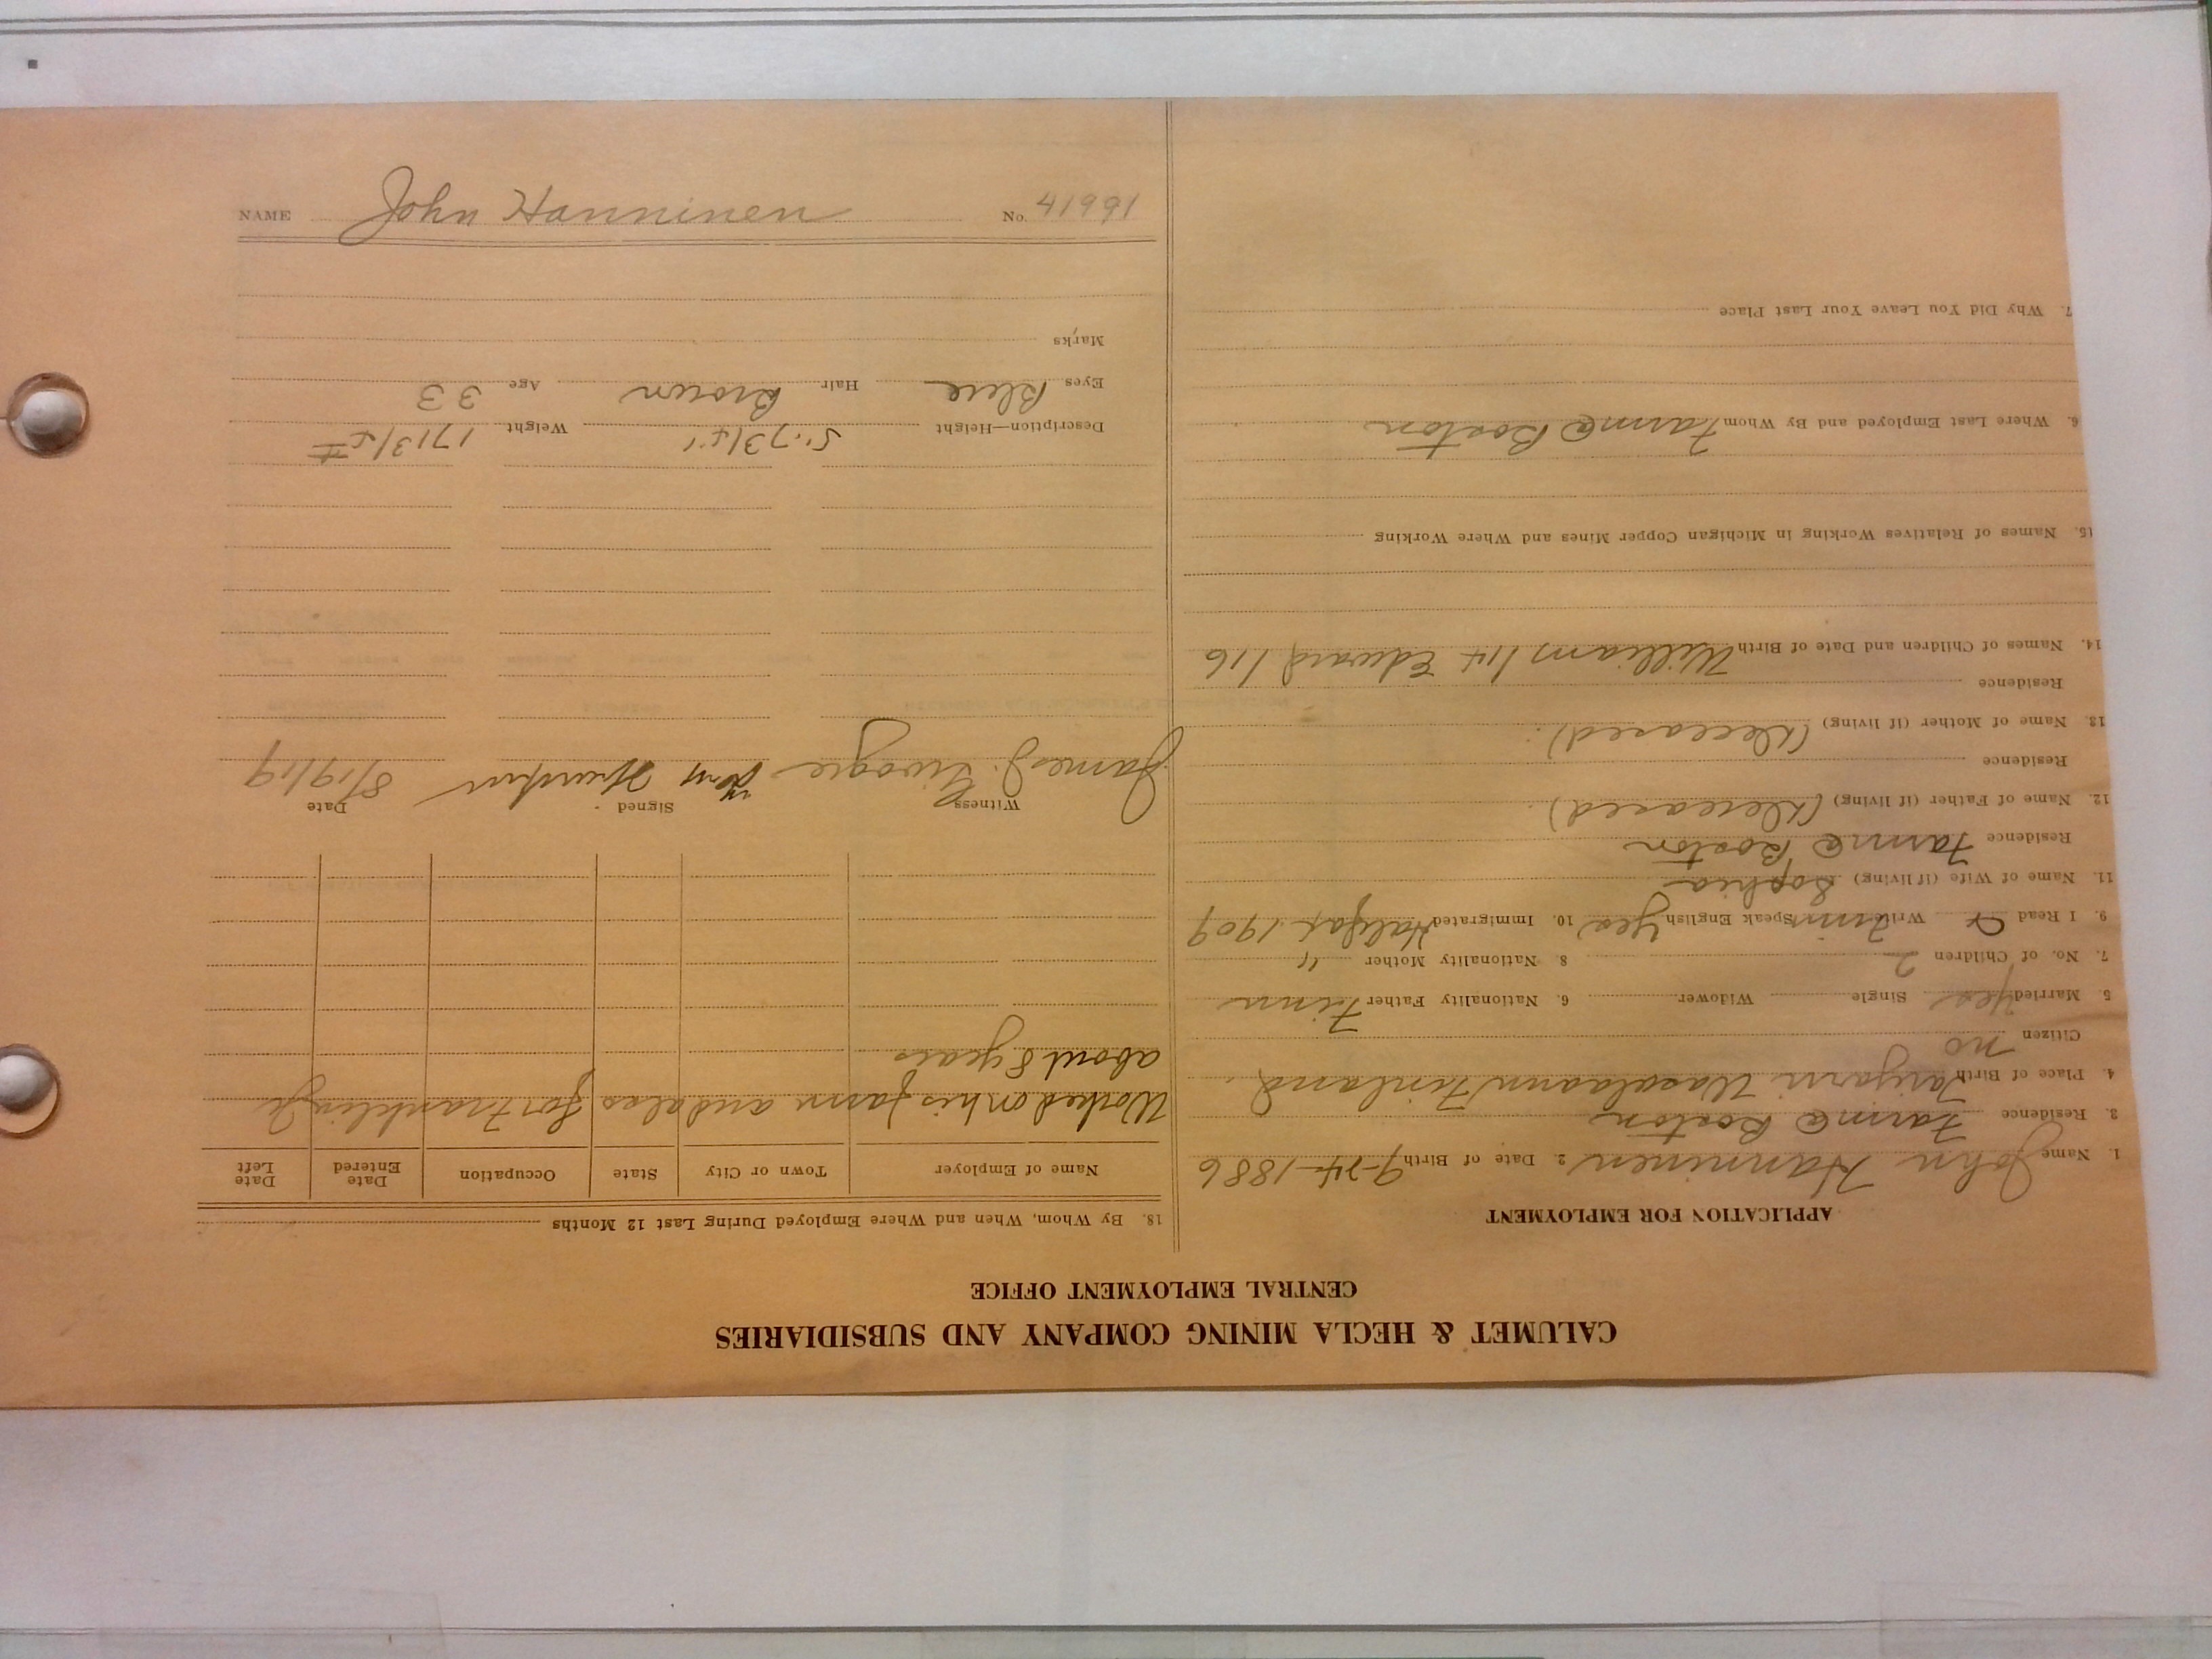 CALUMET & HECLA MINING COMPANY AND SUBSIDIARIES
CENTRAL EMPLOYMENT OFFICE
APPLICATION FOR EMPLOYMENT
1. Name John Hanninen 2. Date of Birth 9-24-1886
3. Residence Farm @ Boston
4. Place of Birth Wasalaani Finland.
Citizen no
5. Married yes Single Widower 6. Nationality Father Finn
7. No. of Children 2 8. Nationality Mother "
9. I Read & Write Finn Speak English yes 10. Immigrated Halifax 1909
11. Name of Wife (if living) Sophia
Residence Farm @ Boston
12. Name of Father (if living) (Deceased).
Residence
13. Name of Mother (if living) (Deceased).
Residence
14. Names of Children and Date of Birth William/14 Edward/16
15. Names of Relatives Working in Michigan Copper Mines and Where Working
6. Where Last Employed and By Whom Farm @ Boston
7. Why Did You Leave Your Last Place
18. By Whom, When and Where Employed During Last 12 Months
Name of Employer Town or City State Occupation Date Entered Date Left
Worked on his farm and also for Franklin Jr
about 8 years
Witness Signed Date
James J. 8/19/19
Description—Height 5'-7 3/4" Weight 171 3/4 #
Eyes Blue Hair Brown Age 33
Marks
NAME John Hanninen No. 41991